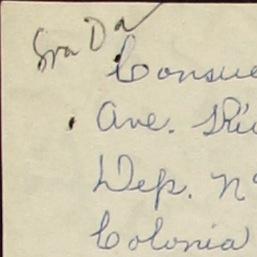 Sra Da
Consue
Ave. Riu
Dep. Nº
Colonia